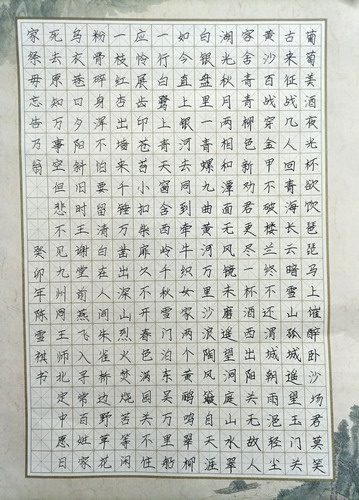 葡萄美酒夜光杯欲饮琵琶马上催醉卧沙场君莫笑
古来征战几人回青海长云暗雪山孤城遥望玉门关
黄沙百战穿金甲不破楼兰终不还渭城朝雨浥轻尘
客舍青青柳色新劝君更尽一杯酒西出阳关无故人
湖光秋月两相和潭面无风镜未磨遥望洞庭山水翠
白银盘里一青螺九曲黄河万里沙浪淘风簸自天涯
如今直上银河去同到牵牛织女家两个黄鹂鸣翠柳
一行白鹭上青天窗含西岭千秋雪门泊东吴万里船
应怜屐齿印苍苔小扣柴扉久不开春色满园关不住
一枝红杏出墙来千锤万凿出深山烈火焚烧若等闲
粉骨碎身浑不怕要留清白在人间朱雀桥边野草花
乌衣巷口夕阳斜旧时王谢堂前燕飞入寻常百姓家
死去原知万事空但悲不见九州同王师北定中愿日
家祭毋忘告乃翁 癸卯年陈雪祺书